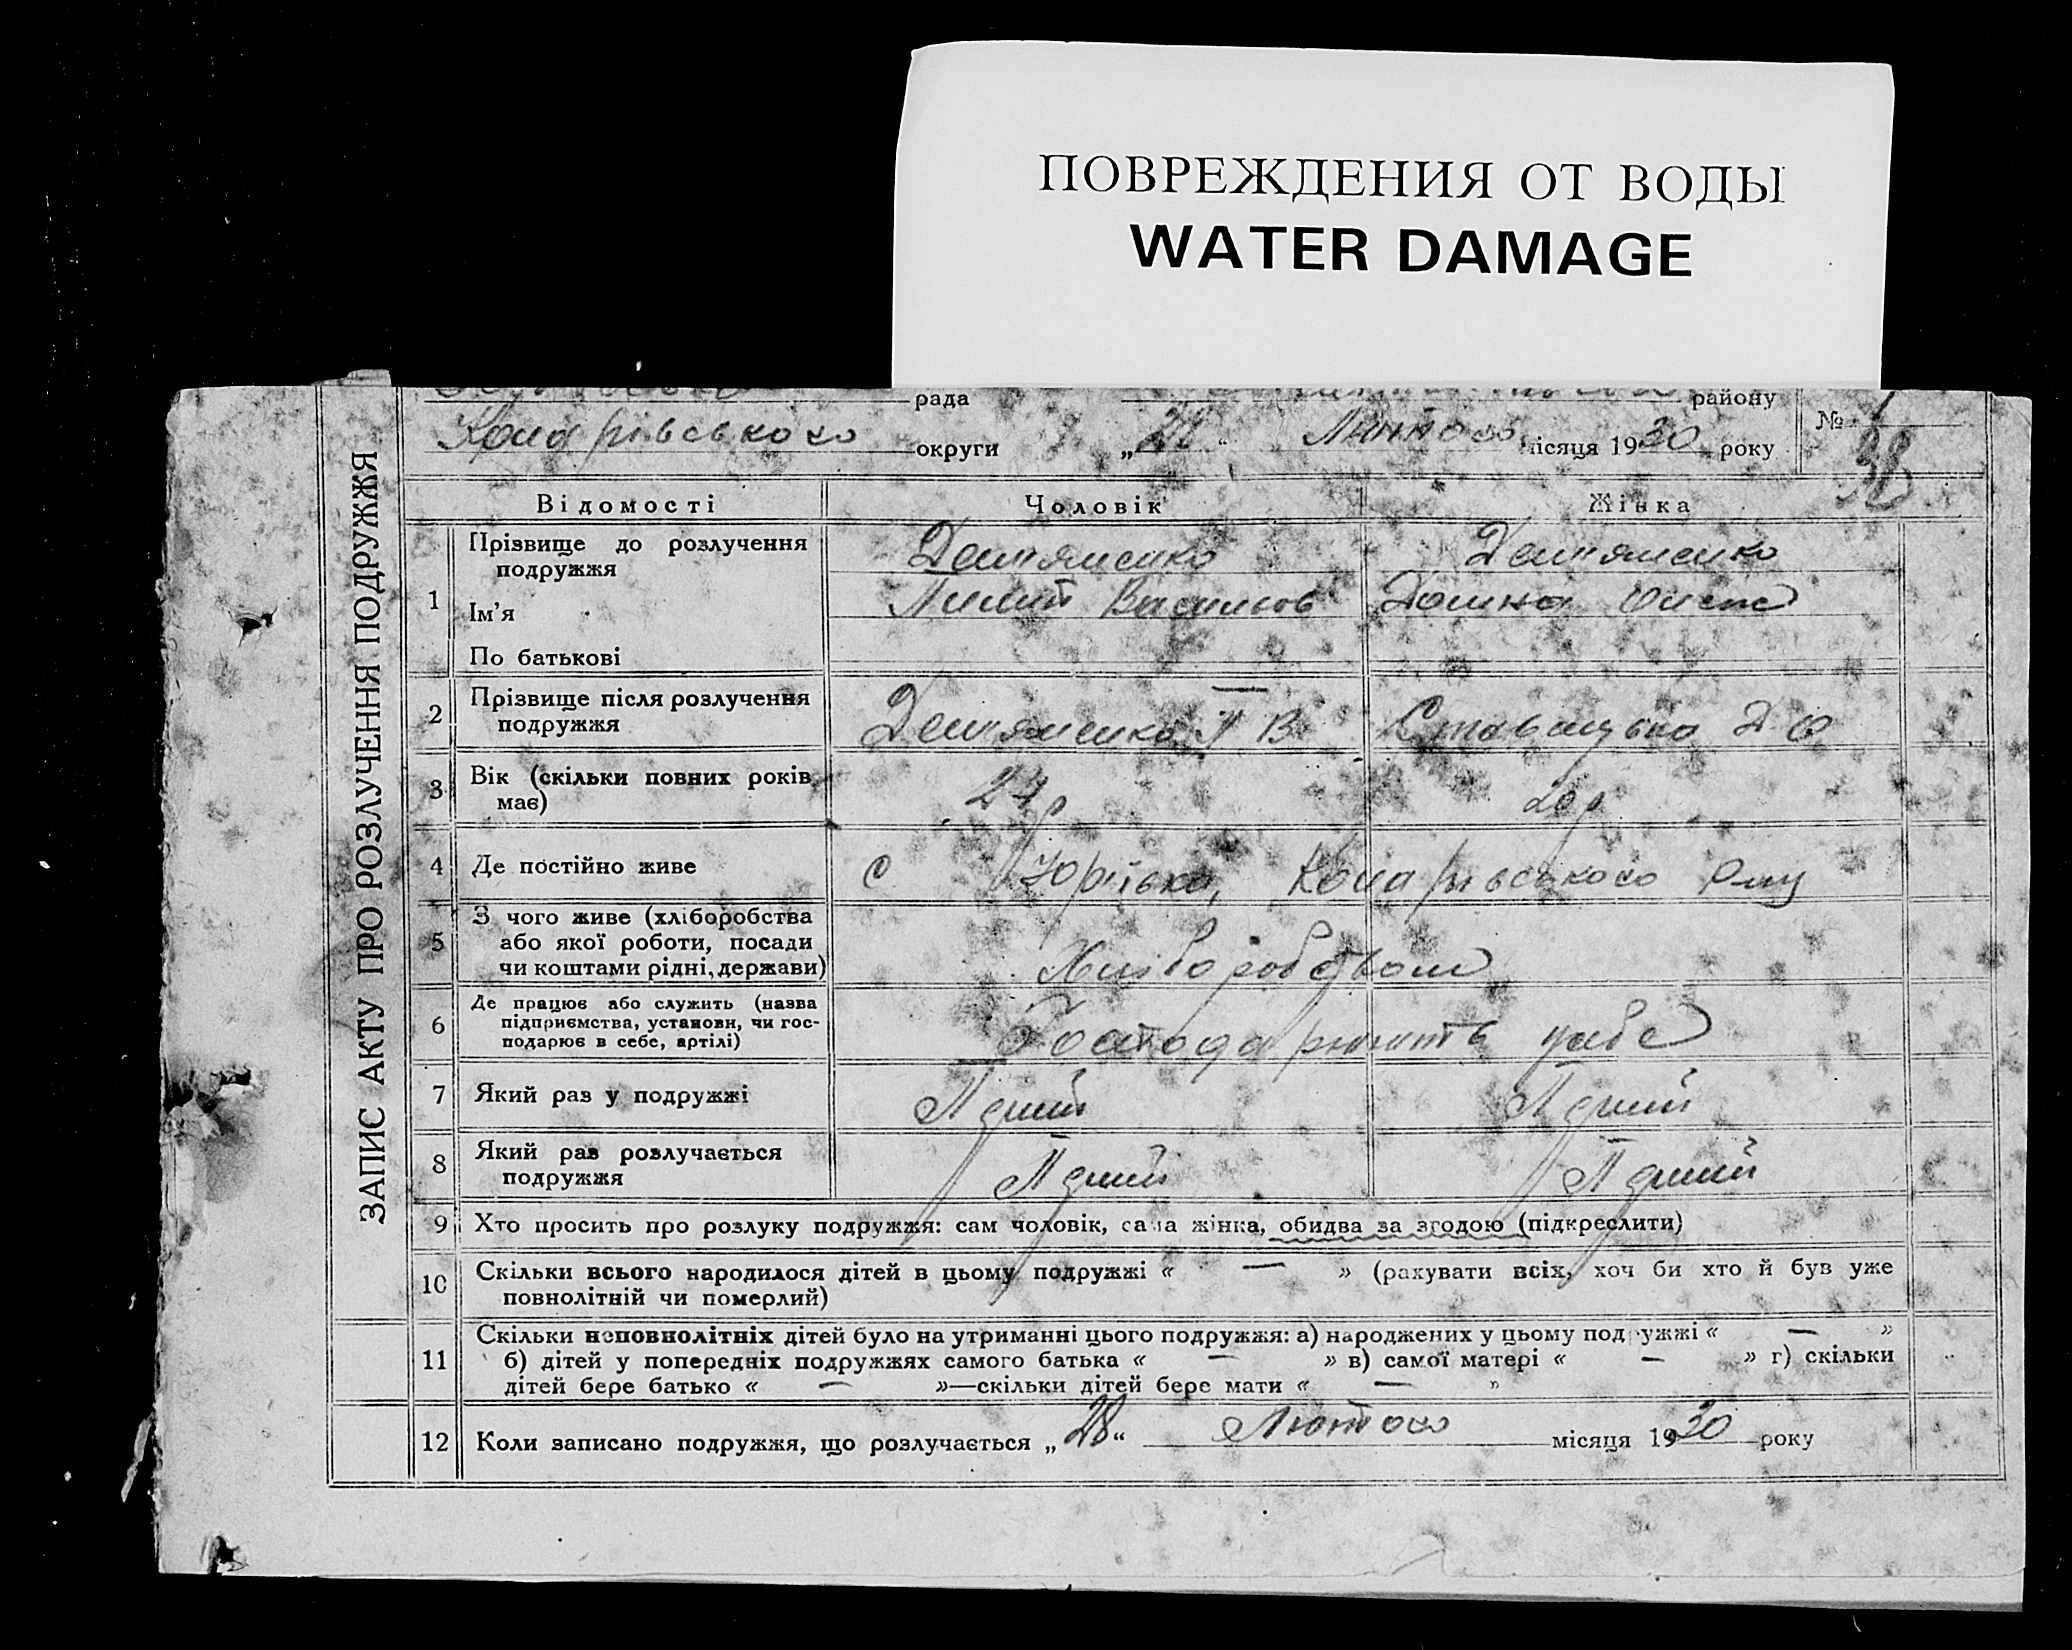 ПОВРЕЖДЕНИЯ ОТ ВОДЫ
WATER DAMAGE
ЗАПИС АКТУ ПРО РОЗЛУЧЕННЯ ПОДРУЖЖЯ
рада району
округи „28“ Лютого місяця 1930 року
№ 38
Відомості Чоловік Жінка
1 Прізвище до розлучення Дем'яненко Дем'яненко
подружжя
Ім'я
По батькові
2 Прізвище після розлучення
подружжя Дем'яненко П В
3 Вік (скільки повних років 27р 20р
має)
4 Де постійно живе с Юріївка,
5 З чого живе (хліборобства
або якої роботи, посади
чи коштами рідні, держави) Хліборобством
6 Де працює або служить (назва
підприємства, установи, чи гос-
подарює в себе, артілі) Господарюють у себе
7 Який раз у подружжі
8 Який раз розлучається
подружжя
9 Хто просить про розлуку подружжя: сам чоловік, сама жінка, обидва за згодою (підкреслити)
10 Скільки всього народилося дітей в цьому подружжі « — » (рахувати всіх, хоч би хто й був уже
повнолітній чи померлий)
11 Скільки неповнолітніх дітей було на утриманні цього подружжя: а) народжених у цьому подружжі « — »
б) дітей у попередніх подружжях самого батька « — » в) самої матері « — » г) скільки
дітей бере батько « — »—скільки дітей бере мати « — »
12 Коли записано подружжя, що розлучається „28“ Лютого місяця 1930 року